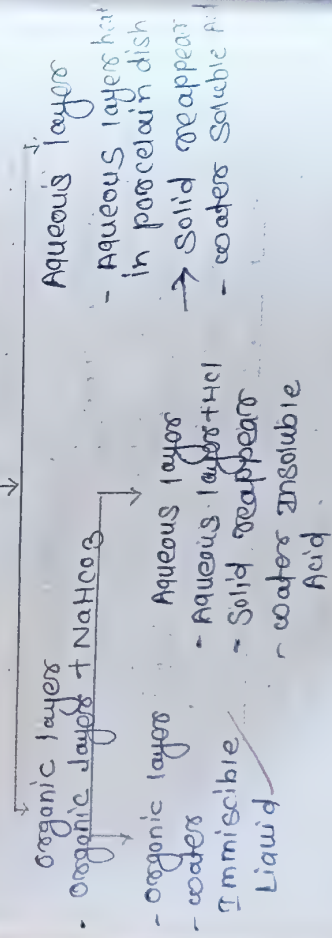 organic layer
- organic layer + NaHCO3
- organic layer
- water
Immiscible
Liquid
Aqueous layer
- Aqueous layer + HCl
- Solid reappear
- water Insoluble
Acid
Aqueous layer
- Aqueous layer heat
in porcelain dish
→ Solid reappear
- water soluble